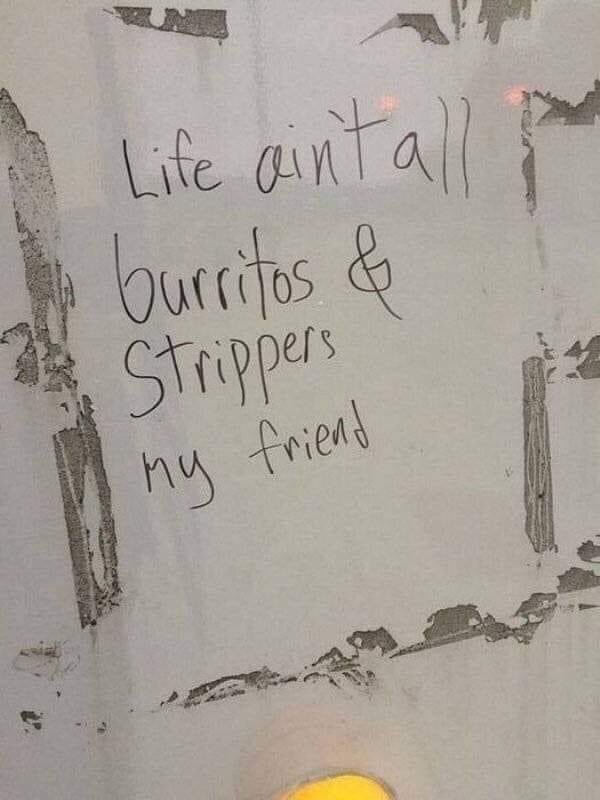 Life ain't all
burritos &
Strippers
my friend